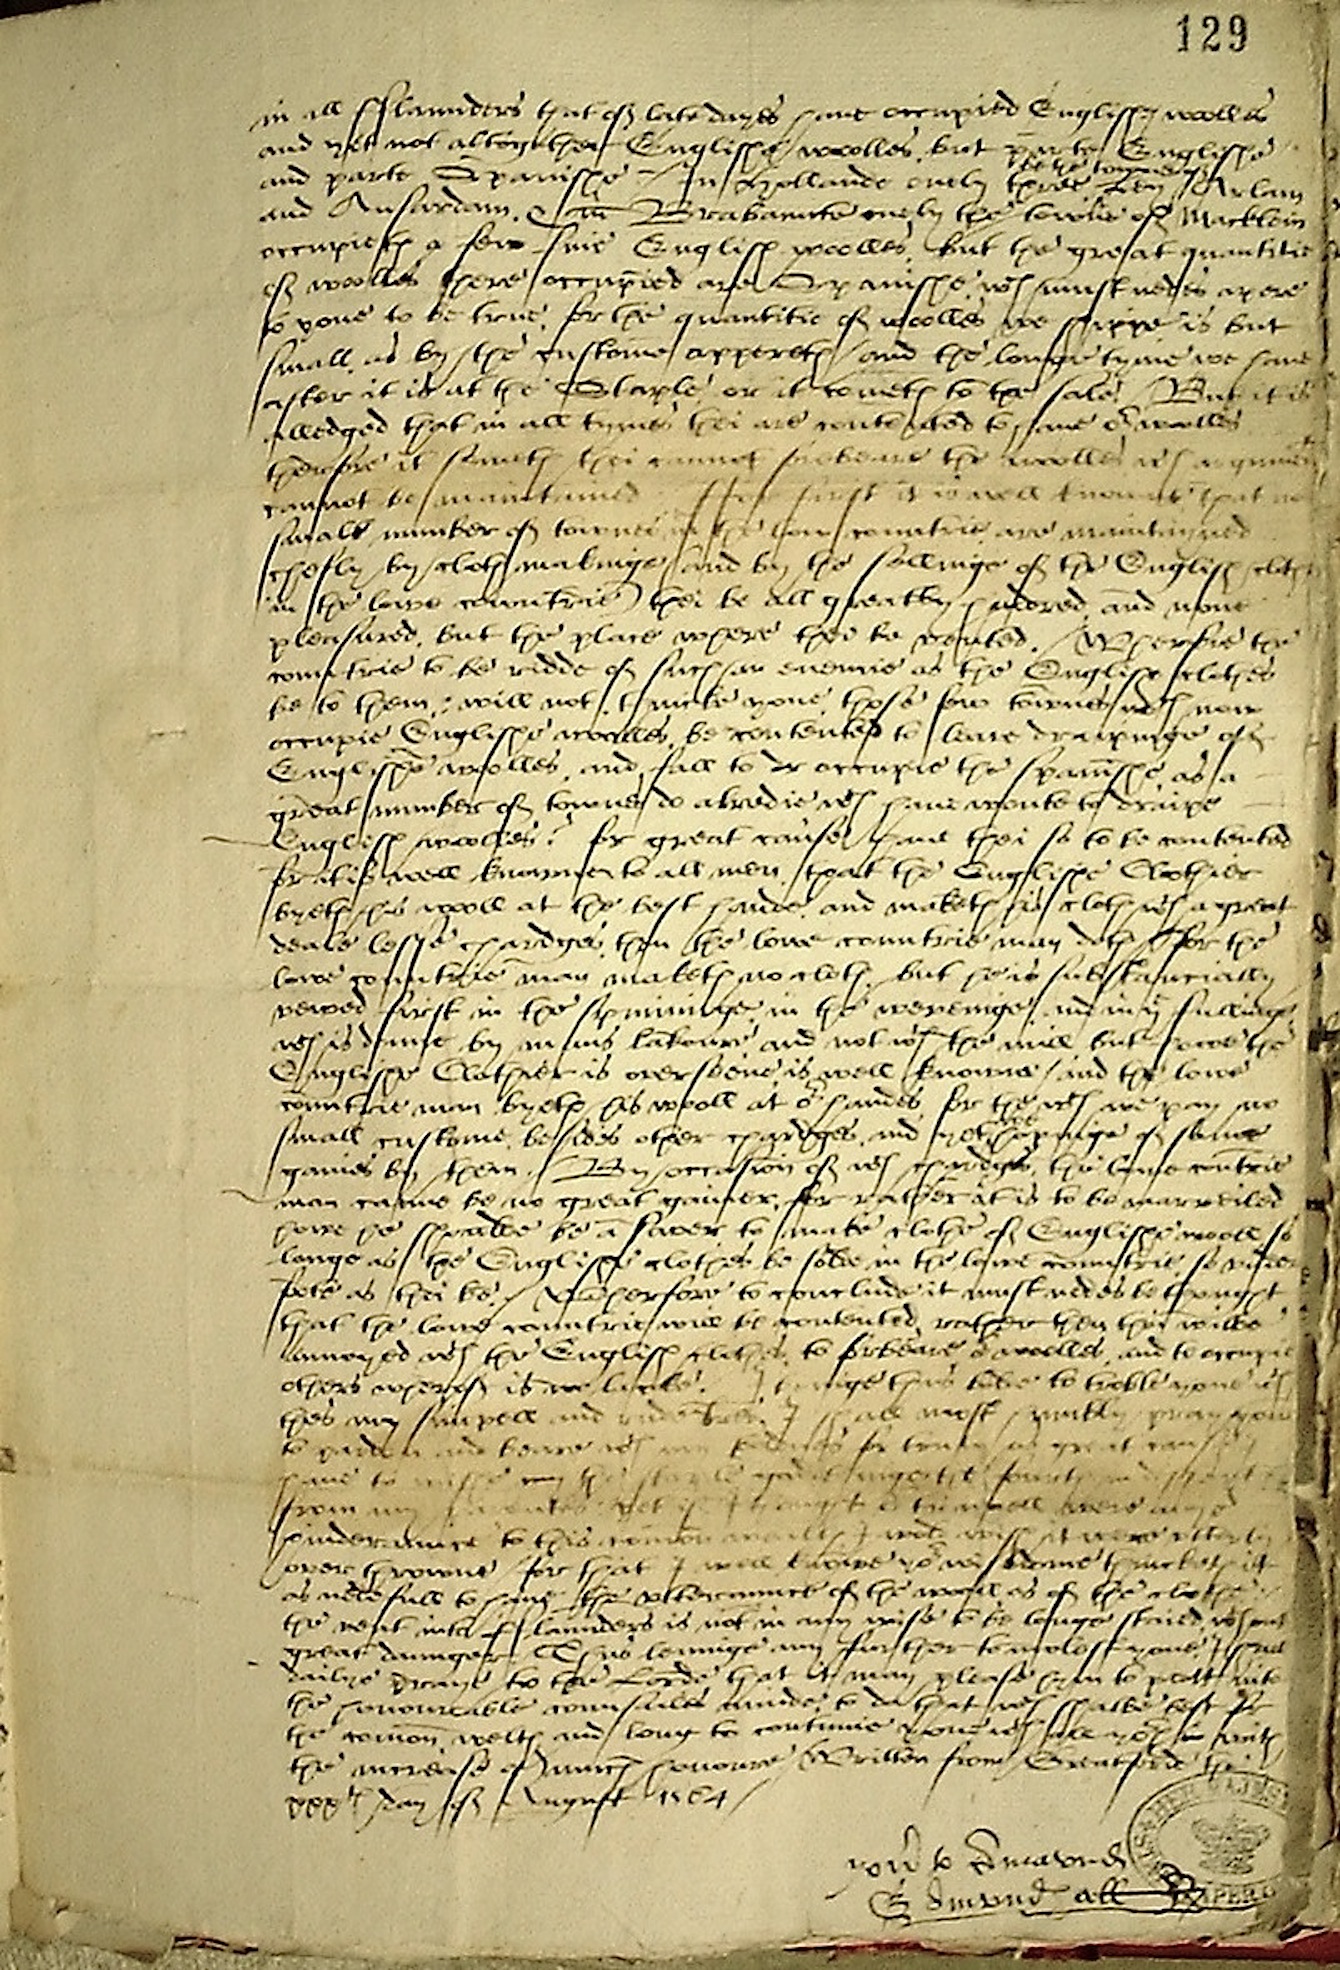 129
in all Fflaunders that of late dayes have occupied Englisshe woolles
and yet not altogether Englisshe woolles, but parte Englisshe
and parte Spanisshe / In Hollande onely three Ley / Arlam
and Amsardam. And in Brabannte onely the towne of Macklein
occupieth a few fine Englisshe woolles, but the great quantitie
of woolles there occupied are Spanisshe, wch must nedes apere
to youe to be true, for the quantitie of woolles we shippe is but
small, as by the custome appereth / and the longe tyme we have
after it is at the Staple or it cometh to the sale / But it is
alledged that in all tymes thei are contented to have or woolles
therfore it semeth thei cannot forbeare the woolles wch argument
cannot be maintained / Ffor first it is well knowne that no
small number of townes in the low countrie are maintayned
chefly by cloth makinge / and by the sellinge of the English clothes
in the lowe countrie thei be all greatly hindred, and none
pleasured, but the place where thei be vented. Wherfore the
countrie to be ridde of such an enemie as the Englisshe clothes
be to them, will not, thinke youe, those few townes wch now
occupie Englisshe woolles, be contented to leave drapinge of
Englisshe woolles, and fall to occupie the Spanisshe, as a
great number of townes do alredie wch have wonte to drape
Englissh woolles? for great cause have thei so to be contented
for it is well knowne to all men, that the Englisshe Clothier
byeth his wooll at the best hande, and maketh his cloth wth a great
deale lesse chardges, then the lowe countrie man doth / for the
lowe countrie man maketh no cloth, but he is substancially
vewed first in the spinninge, in the weveinge, and in ye fullinge
wch is donne by mans laboure and not wth the mill but howe the
Englisshe Clothier is overseene is well knowne / and the lowe
countrie man byeth his wooll at or handes, for the wch we pay no
small custome, besides other chardges, and yet hopinge of some
gaines by them. By occasion of wch chardges, the lowe countrie
man canne be no great gainer, for rather it is to be marveiled
howe he shoulde be a saver to make clothe of Englisshe wooll so
longe as the Englisshe clothes be solde in the lowe countrie, so
as thei be / Wherfore to conclude it must nedes be thought
that the lowe countrie will be contented, rather then thei wilbe
annoyed wth the Englissh clothes, to forbeare or woolles, and to occupie
others wherof is no lacke. I thinge thus bolde to troble youe wth
this my simpell and rude I shall most humbly pray youe
to pardon and beare wth my for truly no great cause I
have to the staple
from my yet if I thought
hinderaunce to this comon wealth I wold wish it were utterly
over throwne / for that I well knowe yor wisdome thincketh it
as nedefull to have the utteraunce of the wooll as of the clothe /
the vent into fflaunders is not in any wise to be longe staied, wthout
great daunger / Thus leavinge any further to molest youe, I shall
dailye praye to the Lorde that it may please him to putt into
the honourable counsailes minde, to do that wch shalbe best for
the comon welth, and long to continue youe in with
the increase of much honoure / Written from Greatford the
xxxth day of August 1564 /
yor to comaund
Edmund all